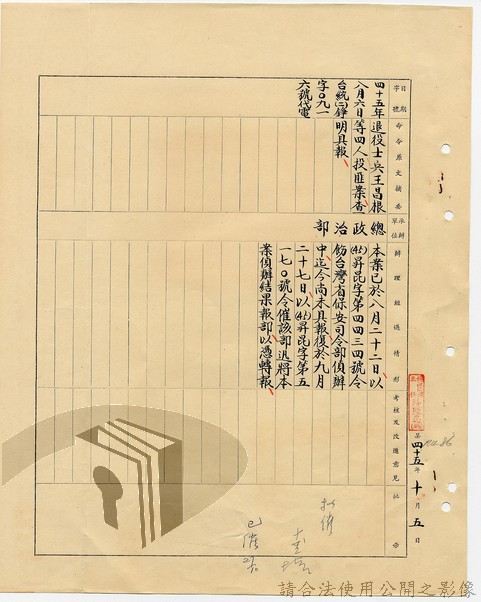 日期
字號
命令原文摘要
承辦單位
辦理經過情形
考核及改進意見
批示
四十五年
八月六日
台統(二)錚
字〇九一
六號代電
退役士兵王昌根
等四人投匪案查
明具報
總政治部
本業已於八月二十二日以
(45)昇昆字第四四三四號令
飭台灣省保安司令部偵辦
中迄今尚未具報復於九月
二十七日以(45)昇昆字第五
一七〇號令催該部迅將本
業偵辦結果報部以憑轉報
四十五年十月五日
請合法使用公開之影像